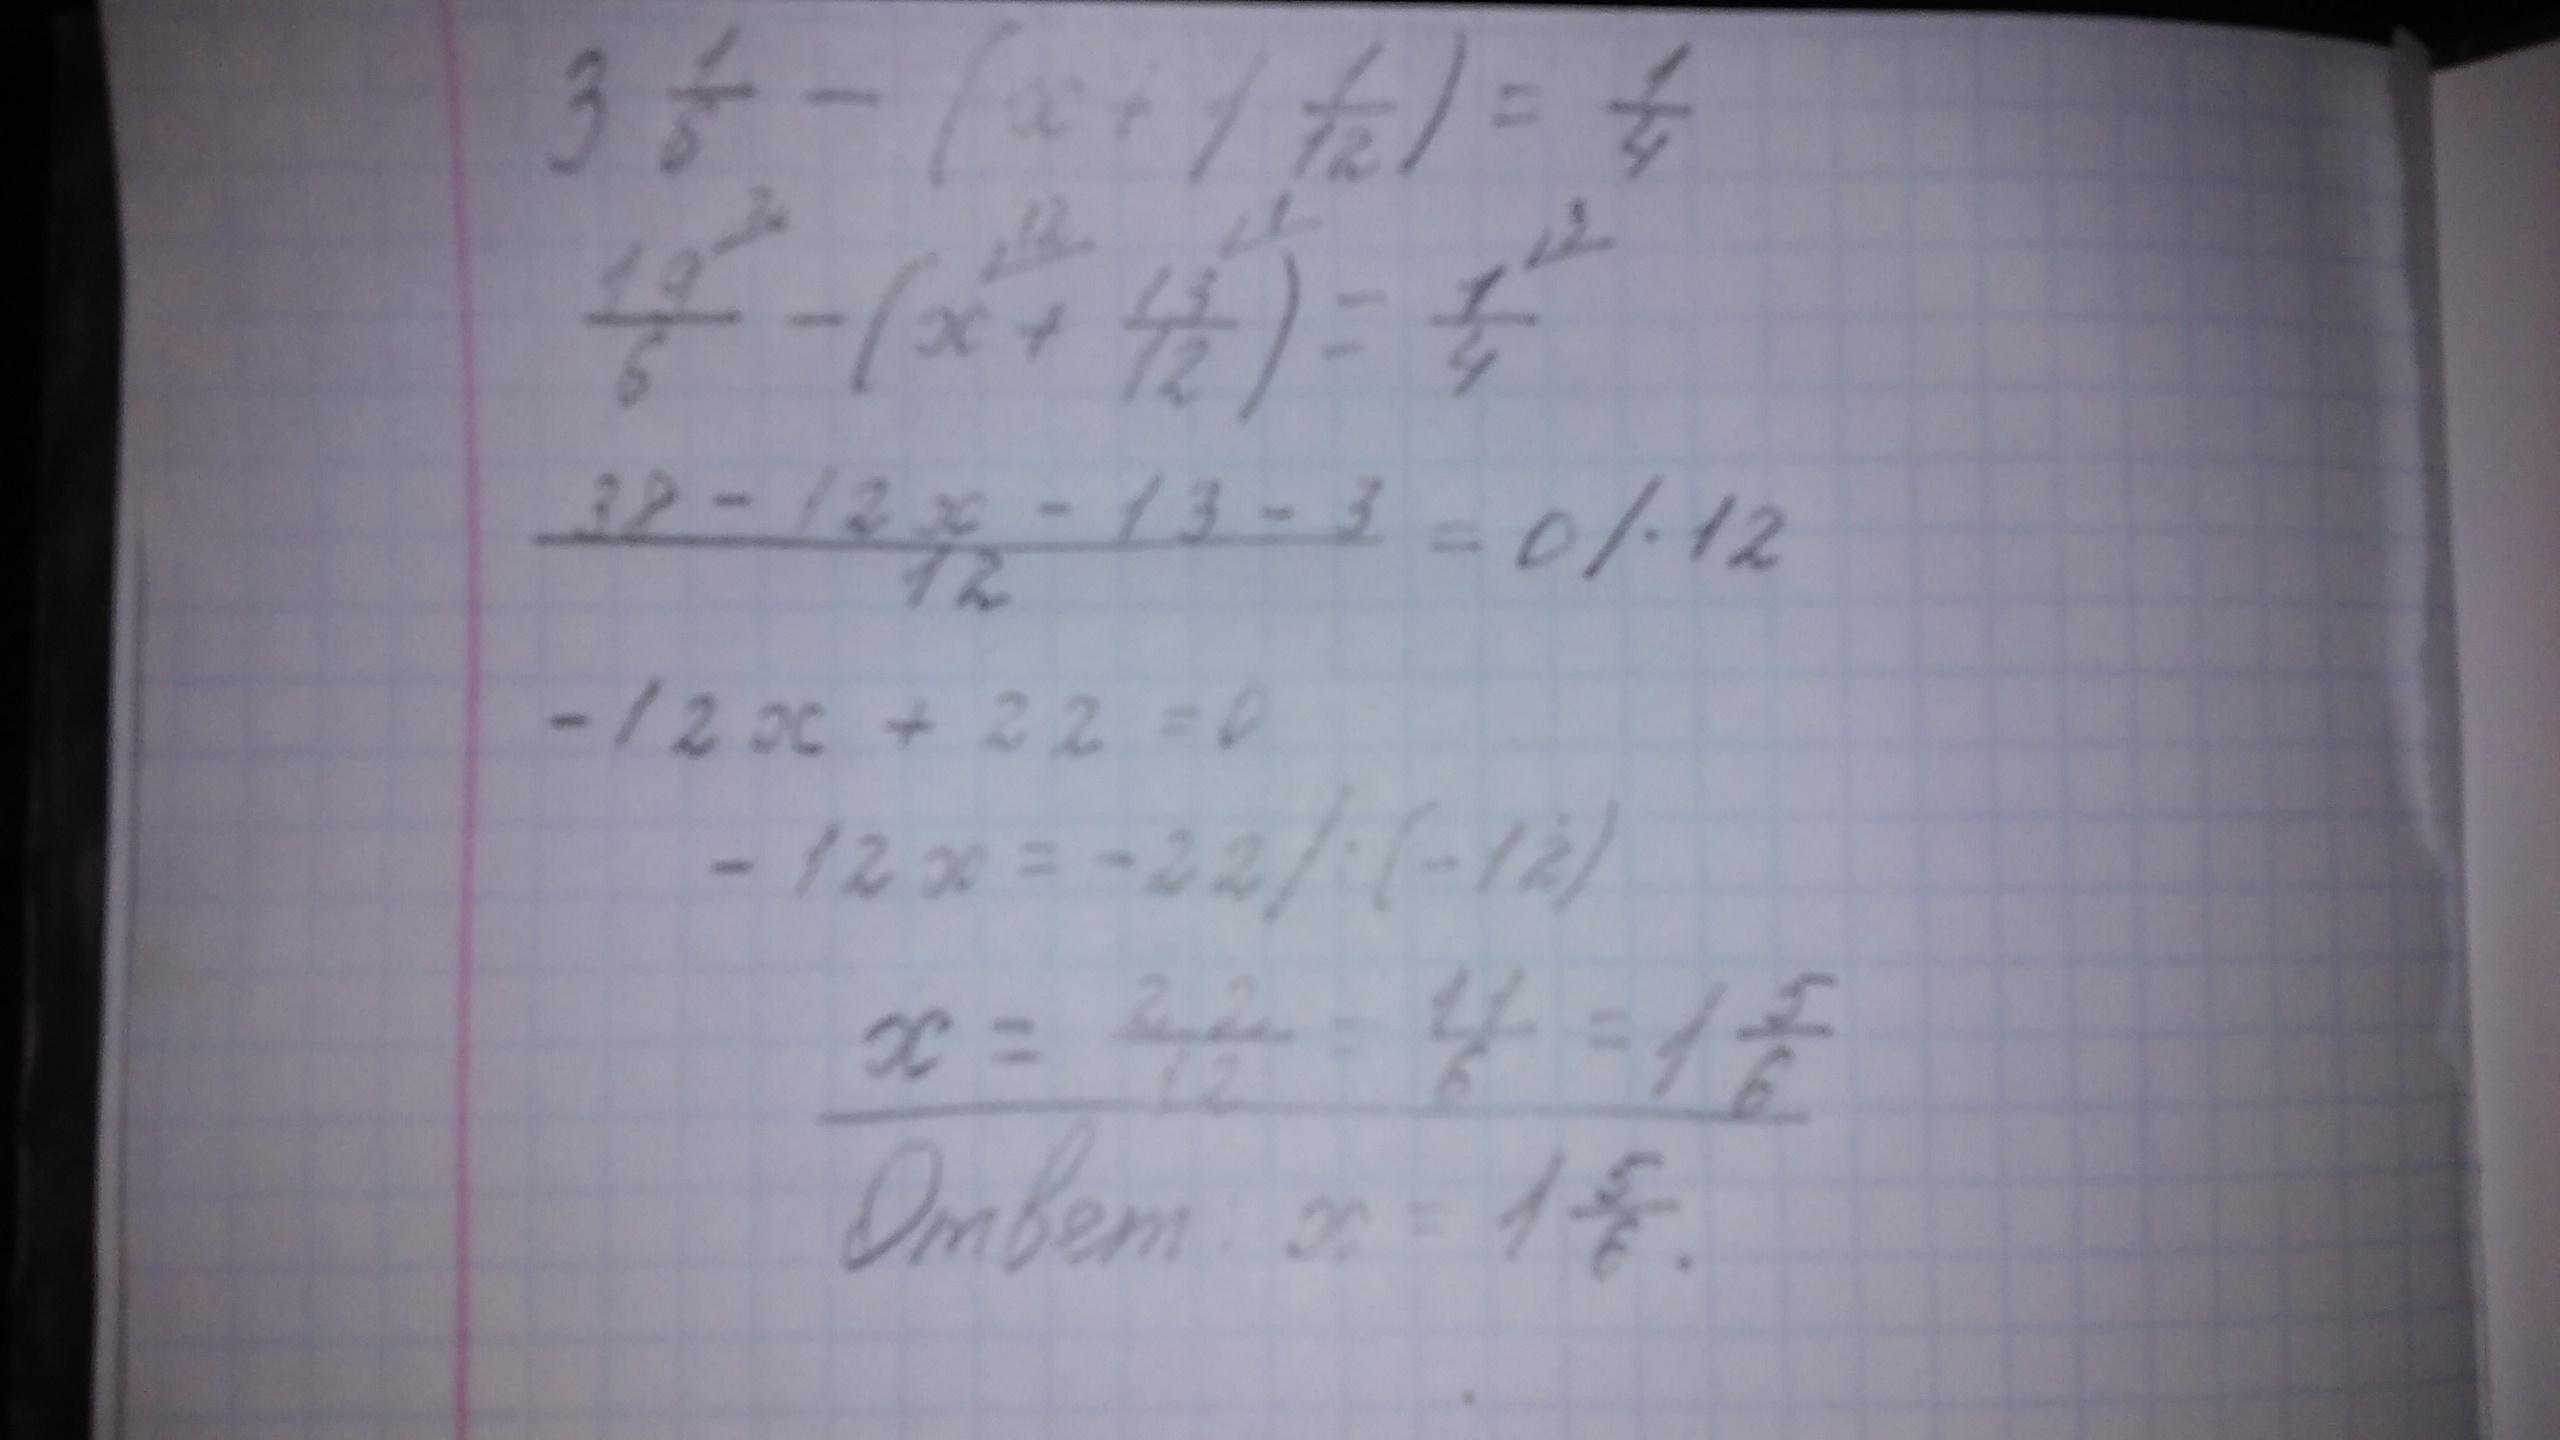 3 1/6 - (x + 1 1/12) = 1/4
19/6 ^2 - (x ^12 + 13/12 ^1) = 1/4 ^3
(38 - 12x - 13 - 3)/12 = 0 / · 12
-12x + 22 = 0
-12x = -22 / : (-12)
x = 22/12 = 11/6 = 1 5/6
Ответ: x = 1 5/6.